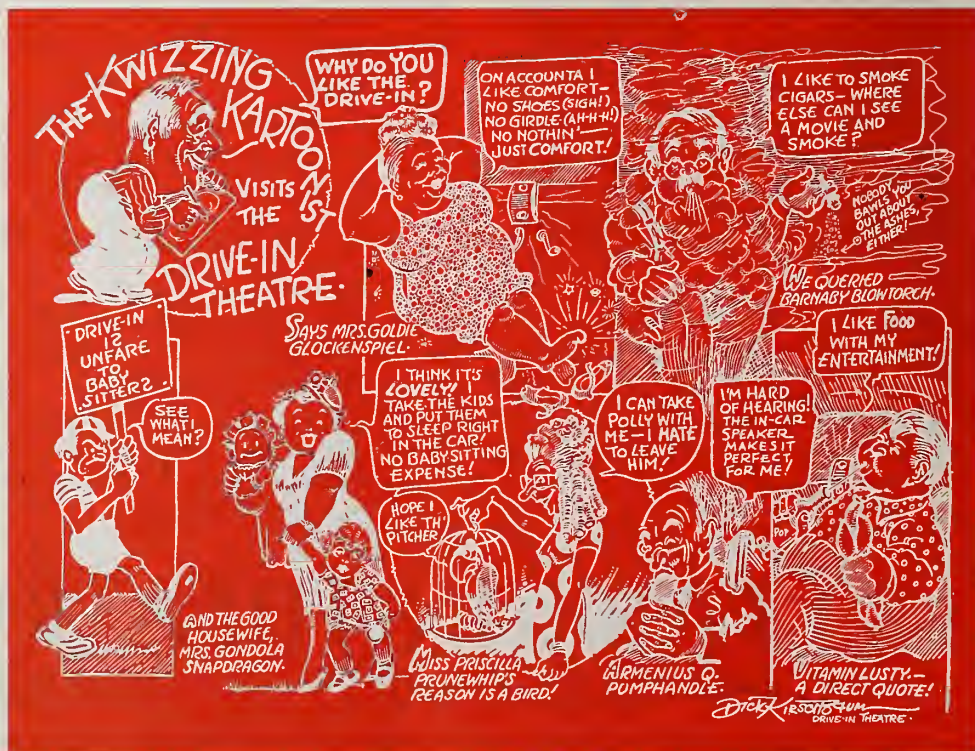 THE KWIZZING
KARTOONIST
VISITS
THE
DRIVE-IN
THEATRE.
WHY DO YOU
LIKE THE
DRIVE-IN?
ON ACCOUNTA I
LIKE COMFORT—
NO SHOES (SIGH!)
NO GIRDLE (AH-H-H!)
NO NOTHIN'—
JUST COMFORT!
SAYS MRS. GOLDIE
GLOCKENSPIEL.
I LIKE TO SMOKE
CIGARS— WHERE
ELSE CAN I SEE
A MOVIE AND
SMOKE?
NOBODY
BAWLS YOU
OUT ABOUT
THE ASHES,
EITHER!—
WE QUERIED
BARNABY BLOWTORCH.
DRIVE-IN
IS
UNFARE
TO
BABY
SITTERS
SEE
WHAT I
MEAN?
I THINK IT'S
LOVELY! I
TAKE THE KIDS
AND PUT THEM
TO SLEEP RIGHT
IN THE CAR!
NO BABY-SITTING
EXPENSE!
AND THE GOOD
HOUSEWIFE,
MRS. GONDOLA
SNAPDRAGON.
HOPE I
LIKE TH'
PITCHER
I CAN TAKE
POLLY WITH
ME— I HATE
TO LEAVE
HIM!
MISS PRISCILLA
PRUNEWHIP'S
REASON IS A BIRD!
I'M HARD
OF HEARING!
THE IN-CAR
SPEAKER
MAKES IT
PERFECT,
FOR ME!
ARMENIUS Q.
PUMPHANDLE.
I LIKE FOOD
WITH MY
ENTERTAINMENT!
POP
VITAMIN LUSTY.—
A DIRECT QUOTE!
DICK KIRSCHBAUM
DRIVE-IN THEATRE.